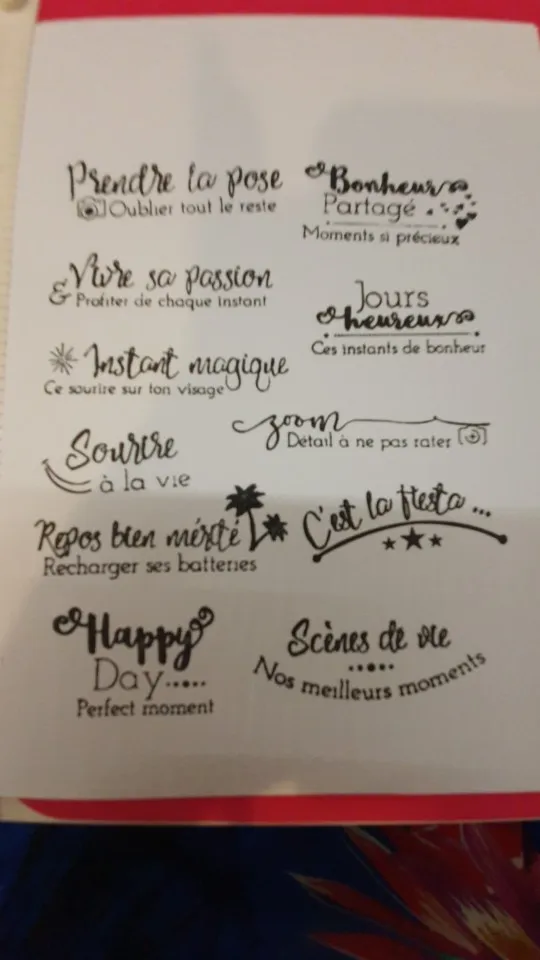 Prendre la pose
Oublier tout le reste
Bonheur
Partagé
Moments si précieux
Vivre sa passion
& Profiter de chaque instant
Jours
heureux
Ces instants de bonheur
Instant magique
Ce sourire sur ton visage
zoom
Détail à ne pas rater
Sourire
à la vie
C'est la fiesta ...
Repos bien mérité
Recharger ses batteries
Happy
Day.....
Perfect moment
Scènes de vie
Nos meilleurs moments